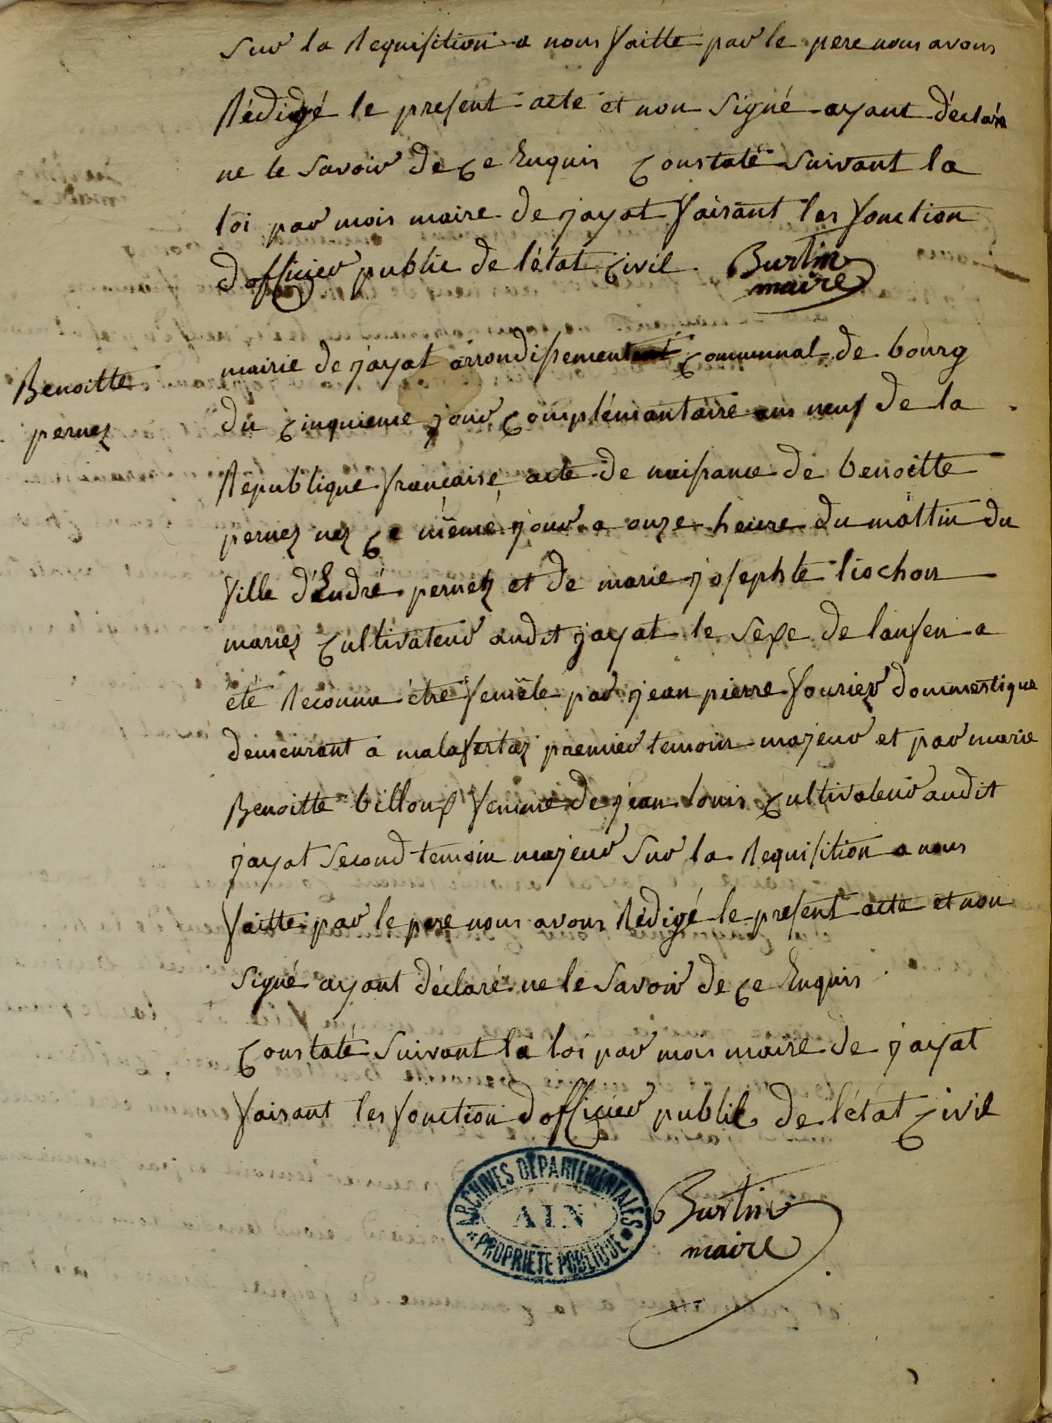 sur la Requisition a nous faitte par le pere nous avons
Rédigé le present acte et non signé ayant déclaré
ne le savoir de ce Enquis Constaté suivant la
loi par mois maire de jayat faisant les fonction
dofficier public de létat civil. Burtin
maire
Benoitte
pernez
mairie de jayat arrondissement communal de bourg
du cinquieme jour complémantaire ans neuf de la
Republique francaise acte de naissance de benoitte
pernez nez ce même jour a onze heure du mattin du
fille d'Endré pernez et de marie josephte liochon
mariez cultivateur audit jayat le sexe de lanfen a
eté Reconnu être femele par jean pierre fouriez dommestique
demeurant a malafertaz premier temoin majeur et par marie
Benoitte billoux femme de jean louis cultivateur audit
jayat second temoin majeur sur la Requisition a nous
faitte par le pere nous avons Rédigé le present acte et non
signé ayant déclaré ne le savoir de ce Enquis
Constaté suivant la loi par mois maire de jayat
faisant les fonction dofficier public de létat civil
ARCHIVES DÉPARTEMENTALES
AIN
PROPRIÉTÉ PUBLIQUE
Burtin
maire